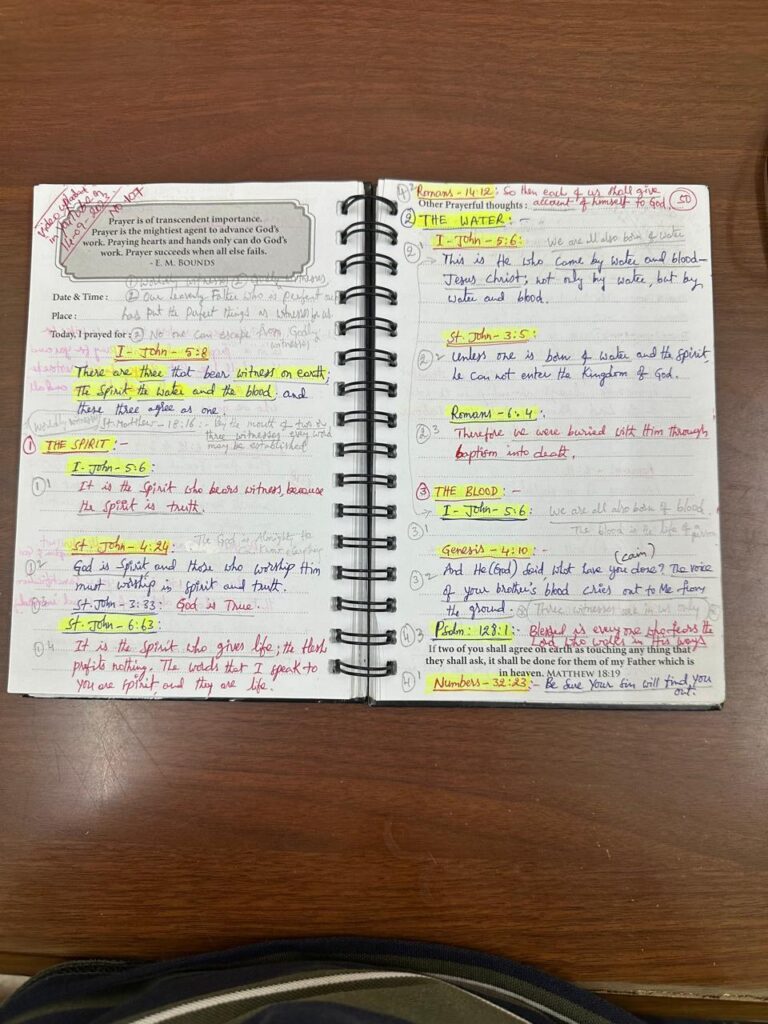 Video uploaded
in YouTube on
14-09-2023
No 107
Prayer is of transcendent importance.
Prayer is the mightiest agent to advance God's
work. Praying hearts and hands only can do God's
work. Prayer succeeds when all else fails.
- E. M. BOUNDS
① Worldly witness ② Godly witness
Date & Time : ② Our Heavenly Father who is perfect
Place : has put the perfect things is witness for us
Today, I prayed for : ② No one can escape from Godly
witnesses
I - John - 5:8
There are three that bear witness on earth;
The Spirit the water and the blood; and
these three agree as one.
Worldly witness St. Matthew - 18:16 :- By the mouth of two or
three witnesses every word
may be established
① THE SPIRIT :-
I - John - 5:6
①1 It is the Spirit who bears witness, because
the Spirit is truth.
St. John - 4:24 : The God is Almighty to
①2 God is Spirit and those who worship Him
must worship in spirit and truth.
①3 St. John - 3:33 : God is True.
St. John - 6:63
①4 It is the Spirit who gives life; the flesh
profits nothing. The words that I speak to
you are spirit and they are life.
④2 Romans - 14:12 : So then each of us shall give
Other Prayerful thoughts : account of himself to God. 50
② THE WATER : -
I - John - 5:6 : We are all also born of water
②1 This is He who came by water and blood—
Jesus Christ; not only by water, but by
water and blood.
St. John - 3:5 :
②2 Unless one is born of water and the Spirit,
he can not enter the Kingdom of God.
Romans - 6:4 :
②3 Therefore we were buried with Him through
baptism into death.
③ THE BLOOD : -
I - John - 5:6 : We are all also born of blood.
③1 The blood is the life of a person
Genesis - 4:10 : - (Cain)
③2 And He (God) Said, What have you done? The voice
of your brother's blood cries out to Me from
the ground. Three witnesses are in us only
④3 Psalm : 128:1 : Blessed is every one who fears the
Lord who walks in His ways
If two of you shall agree on earth as touching any thing that
they shall ask, it shall be done for them of my Father which is
in heaven. MATTHEW 18:19
④1 Numbers - 32:23 :- Be Sure Your Sin will find you
out.